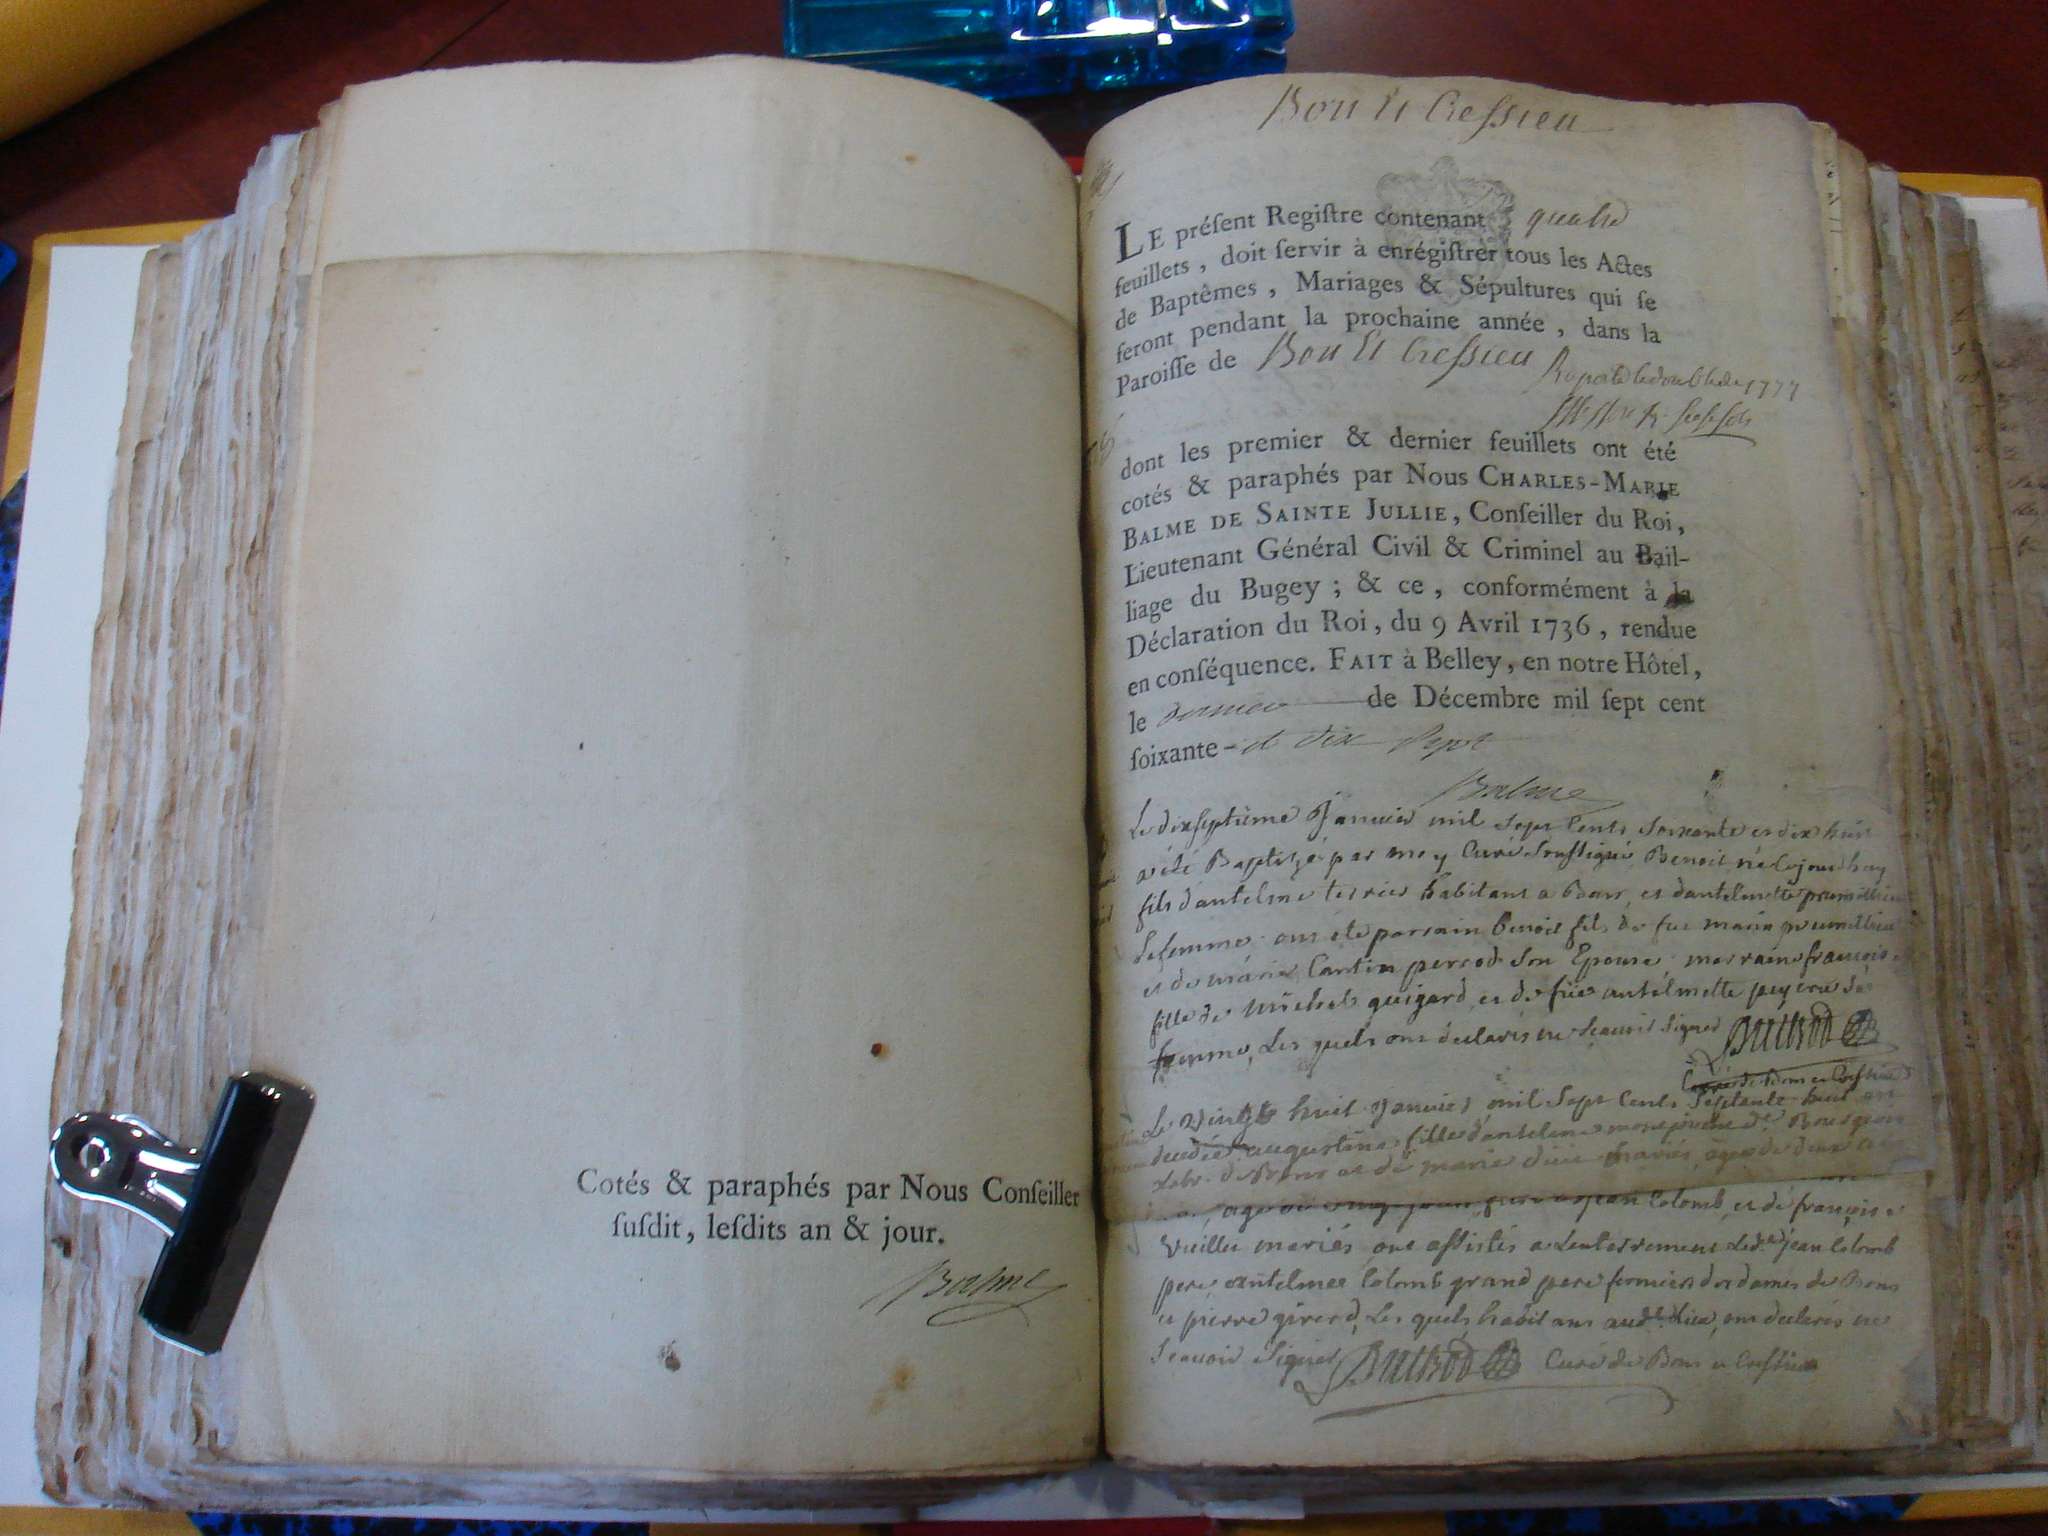 Cotés & paraphés par Nous Conſeiller
ſuſdit, leſdits an & jour.
Balme
Bon Et Creſsieu
LE préſent Regiſtre contenant quatre
feuillets, doit ſervir à enrégiſtrer tous les Actes
de Baptêmes, Mariages & Sépultures qui ſe
feront pendant la prochaine année, dans la
Paroiſſe de Bon Et Creſsieu
Raporté le double de 1777
dont les premier & dernier feuillets ont été
cotés & paraphés par Nous CHARLES-MARIE
BALME DE SAINTE JULLIE, Conſeiller du Roi,
Lieutenant Général Civil & Criminel au Bail-
liage du Bugey; & ce, conformément à la
Déclaration du Roi, du 9 Avril 1736, rendue
en conſéquence. FAIT à Belley, en notre Hôtel,
le dernier de Décembre mil ſept cent
ſoixante- et dix Sept
Balme
Le dixseptieme Janvier mil Sept Cents Soixante et dix huit
a été Baptizé par moy Curé Soussigné Benoit né cejourdhuy
fils d'antelme terrier habitant a Bons, et d'antelmette prumillieu
Sa femme ont été parrain benoit fils de feu prumillieu
et de marie Cantin percod Son Epouse, marraine françoise
fille de Michel guigard et de füe antelmette peycru Sa
femme, Les quels ont declarés ne Scavoir Signer
Curé de Bons et Cressieu
Le vingt huit Janvier mil Sept Cents Septante huit
decedée augustine fille d'antelme
de Bons et de marie mariés, agée de deux
agé de pere a jean Colomb, et de françoise
Vuillier mariés, ont assistés a Lenterrement Led. jean Colomb
pere, antelme Colomb grand pere fermiers des dames de Bons
et pierre girerd, Les quels habitans aud. Lieu, ont declarés ne
Scavoir Signer Curé de Bons et Cressieu